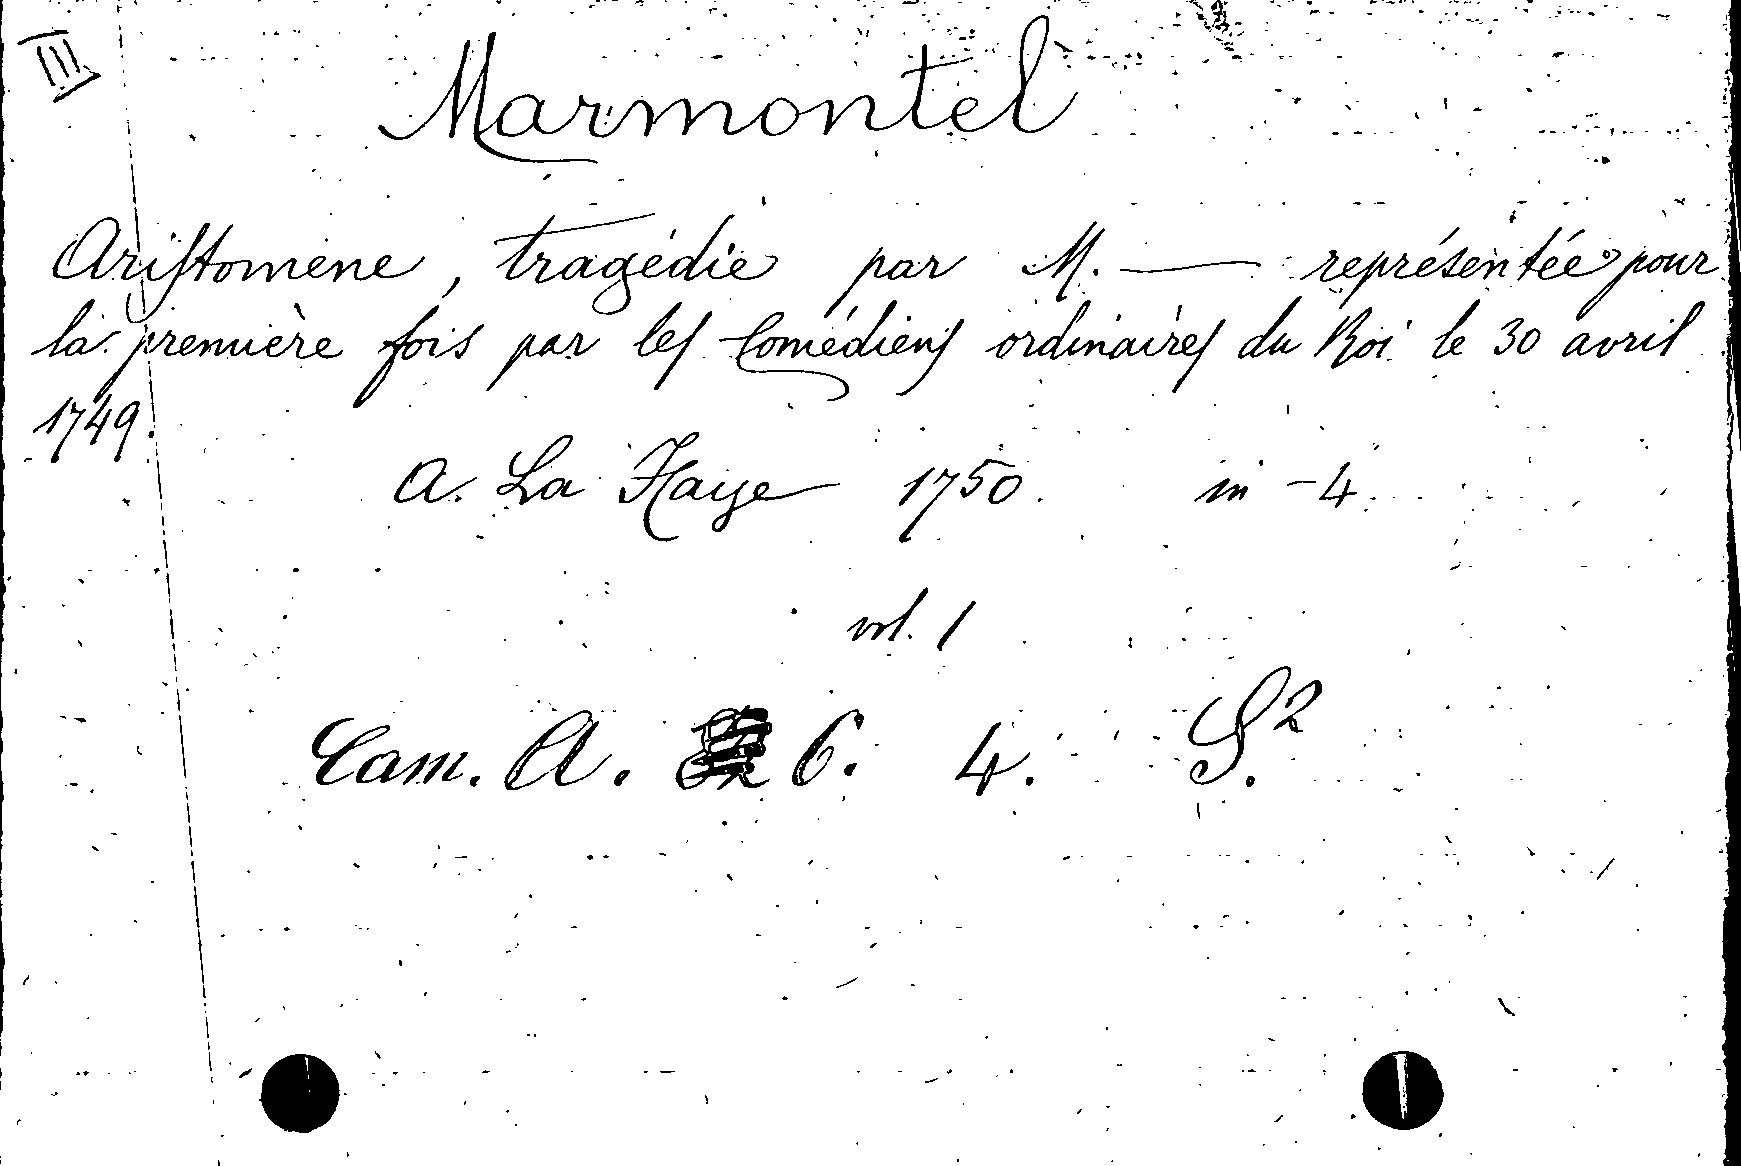 III
Marmontel
Ariſtomene, tragédie par M. —— représentée pour
la première fois par leſ Comédienſ ordinaireſ du Roi le 30 avril
1749.
A. La Haye 1750. in-4.
vol. 1
Cam. A. 6. 4. S.²